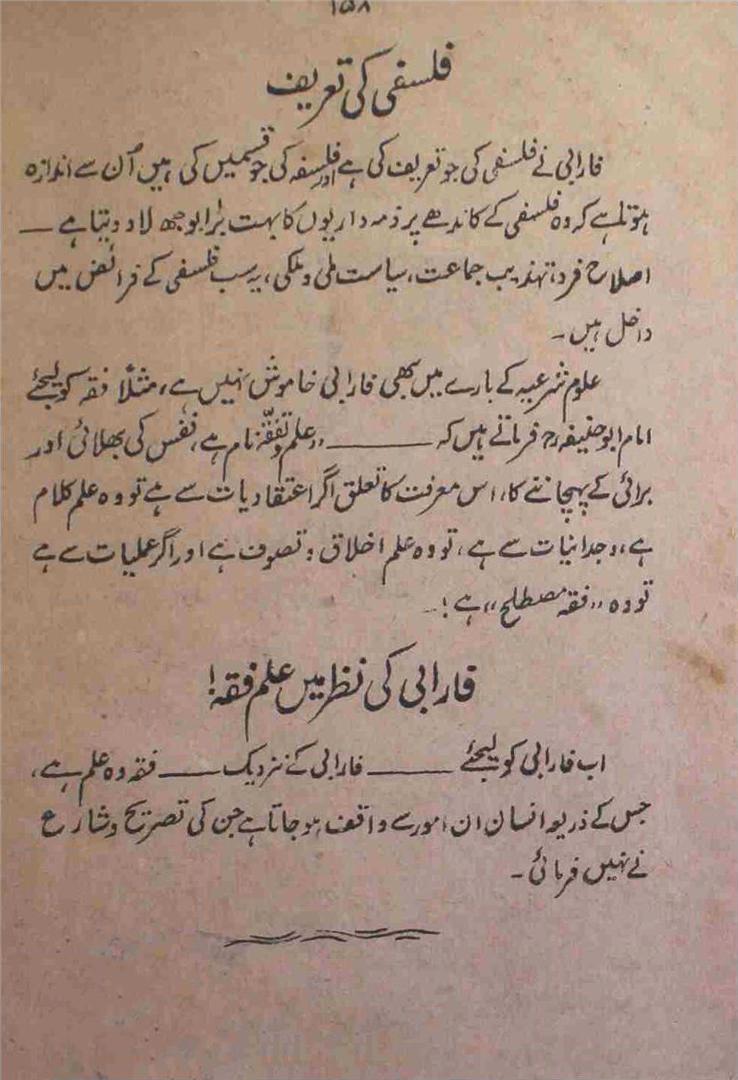 ۱۵۸
فلسفی کی تعریف
فارابی نے فلسفی کی جو تعریف کی ہے اور فلسفہ کی جو قسمیں کی ہیں اُن سے اندازہ
ہوتا ہے کہ وہ فلسفی کے کاندھے پر ذمہ داریوں کا بہت بڑا بوجھ لاد دیتا ہے —
اصلاح فرد، تہذیب جماعت، سیاست ملی و ملکی، یہ سب فلسفی کے فرائض میں
داخل ہیں۔
علوم شرعیہ کے بارے میں بھی فارابی خاموش نہیں ہے، مثلاً فقہ کو لیجئے
امام ابو حنیفہ رح فرماتے ہیں کہ ——— ,, علم و تفقّہ نام ہے، نفس کی بھلائی اور
برائی کے پہچاننے کا،، اس معرفت کا تعلق اگر اعتقادیات سے ہے تو وہ علم کلام
ہے، وجدانیات سے ہے، تو وہ علم اخلاق و تصوف ہے اور اگر عملیات سے ہے
تو وہ ,,فقہ مصطلح،، ہے !۔
فارابی کی نظر میں علم فقہ!
اب فارابی کو لیجئے ——— فارابی کے نزدیک —— فقہ وہ علم ہے،
جس کے ذریعہ انسان ان امور سے واقف ہو جاتا ہے جن کی تصریح شارع
نے نہیں فرمائی۔